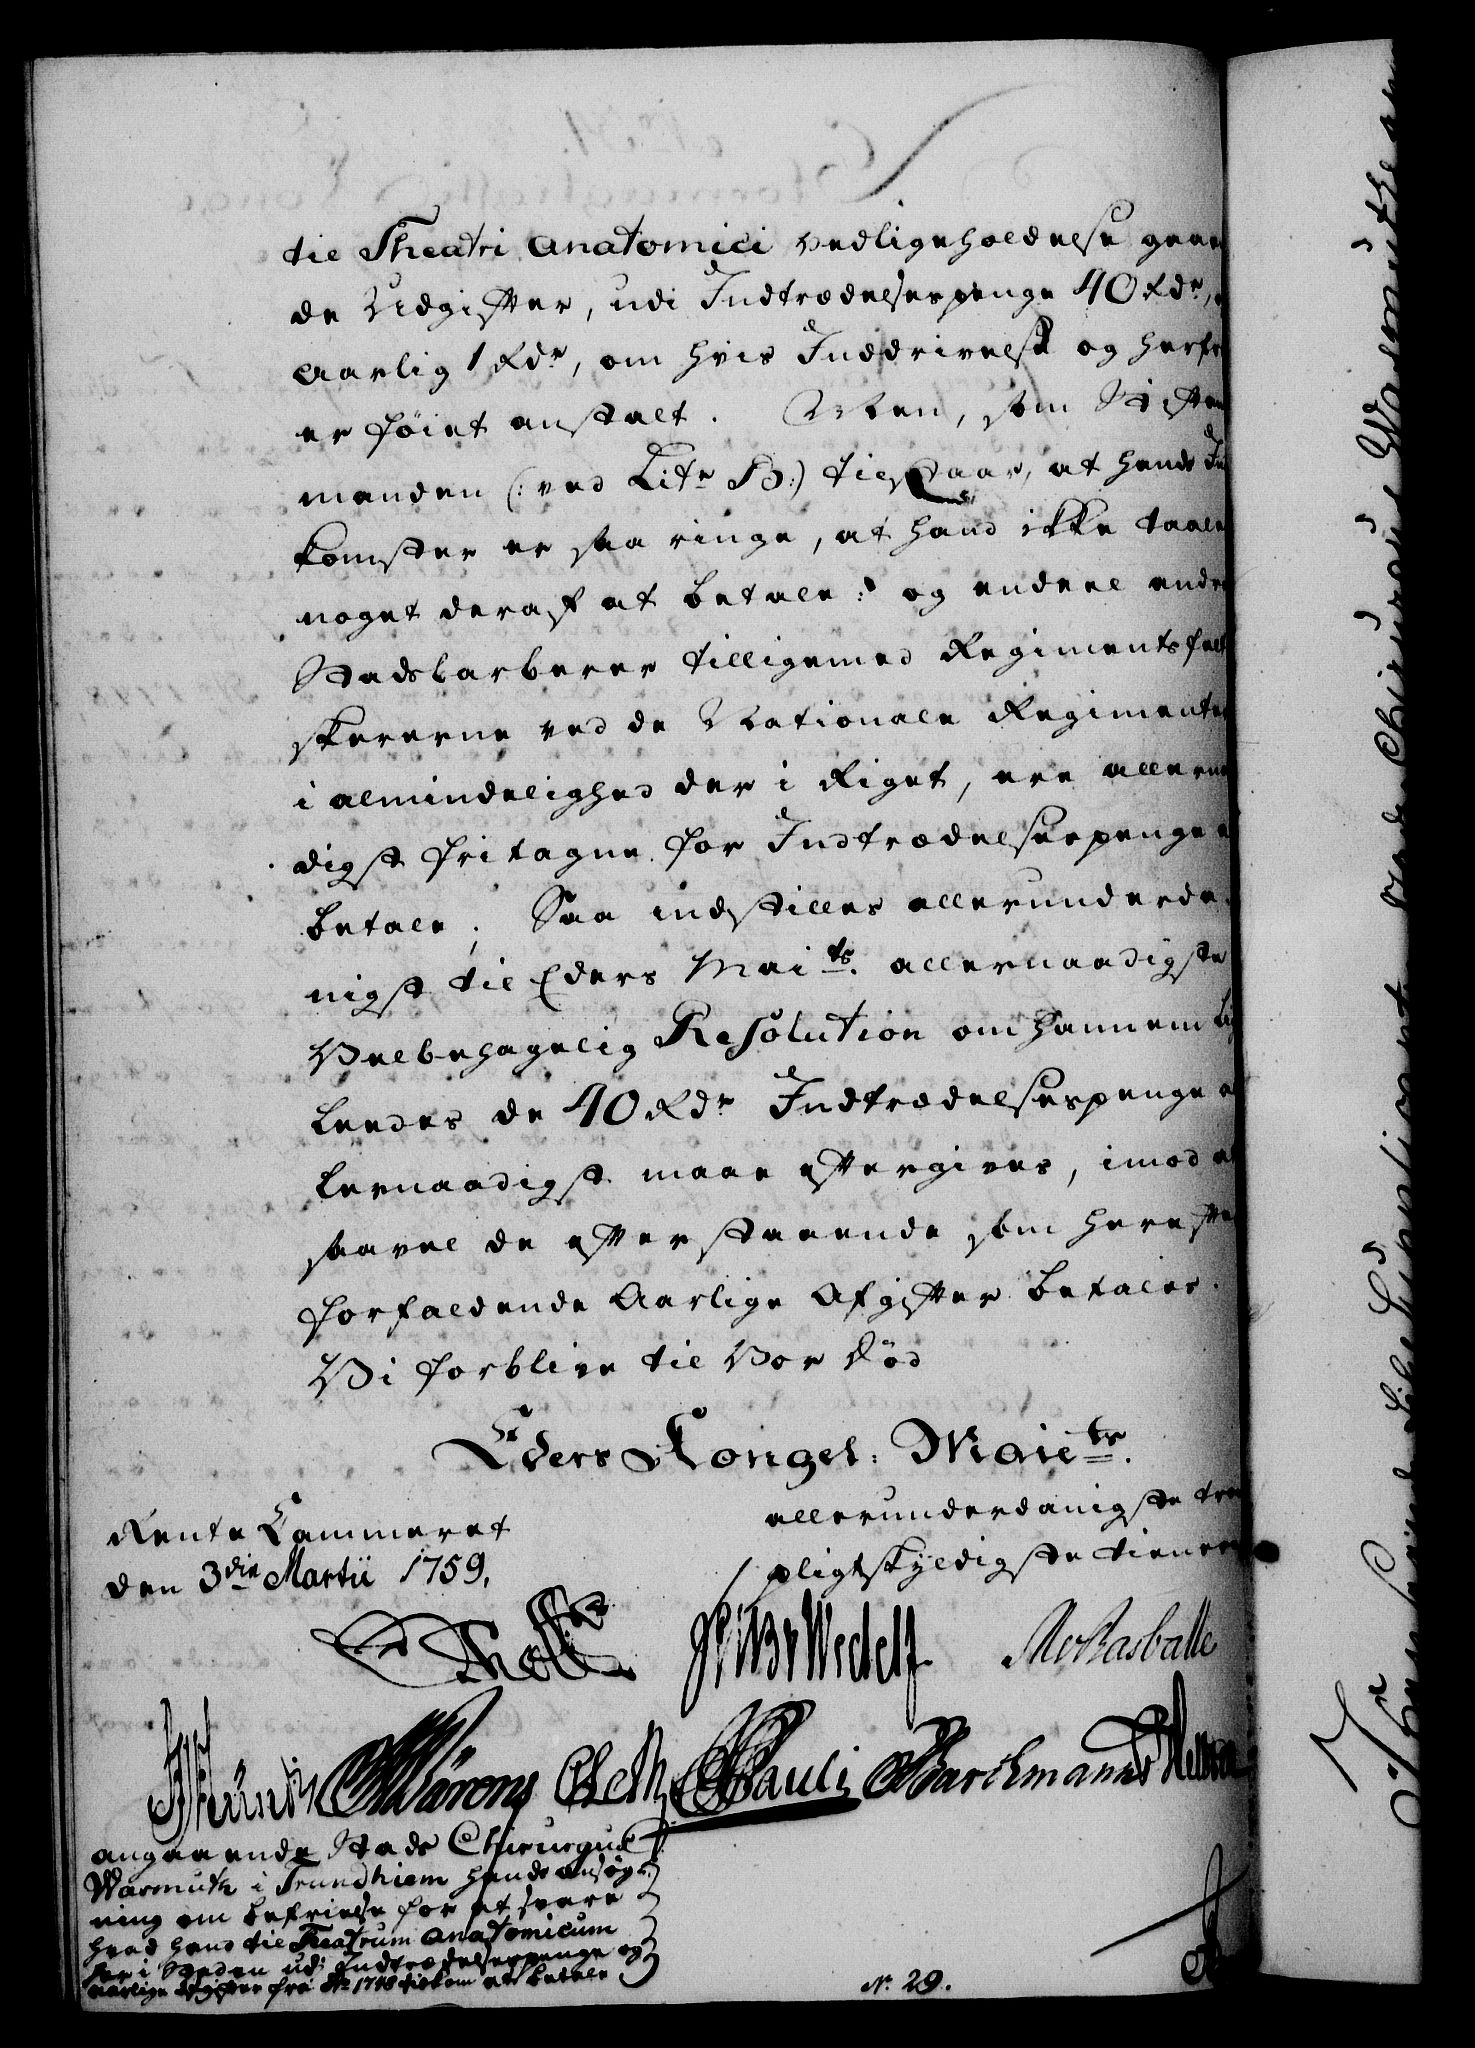 til Theatri Anatomici Vedligeholdelse gien
de Udgifter, udi Indtrædelsespenge 40 Rdr,
Aarlig 1 Rdr, om hvis Inddrivelse og herfr
er føiet anstalt. Men, som Stifts
manden (: ved Litr B:) tilstaar, at hands Ind
komster er saa ringe, at hand ikke taale
noget deraf at betale: og endeel andre
Stadsbarberer tilligemed Regimentsfelt
skererne ved de Nationale Regimenter
i almindelighed der i Riget, ere allern
digst fritagne for Indtrædelsespenge
betale; Saa indstilles allerunderda
nigst til Eders Maits. allernaadigste
Velbehagelig Resolution om hannem Li
leedes de 40 Rdr Indtrædelsespenge a
lernaadigst maae eftergives, imod at
saavel de efterstaaende som herefter
forfaldende Aarlige Afgifter betales.
Vi forblive til Vor Død
Eders Kongel: Maits.
allerunderdanigste tro
pligtskyldigste tienere
Rente Cammeret
den 3die Martii 1759.
Wedell
Rasballe
Pauli Barchmann
angaaende Stads Chirurgus
Wasmuth i Trundhiem hands ansøg
ning om befrielse for at svare
hvad hand til Theatrum Anatomicum
her i Staden udi Indtrædelsespenge og
aarlige Afgifter fra Ao 1748 tilkom at betale
No. 29.